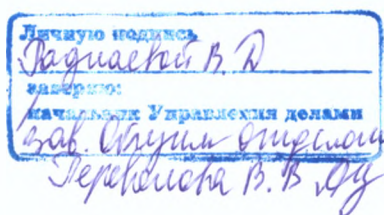 Личную подпись
Раднаевой В. Д
заверяю:
начальник Управления делами
зав. Общим отделом
Перевалова В. В